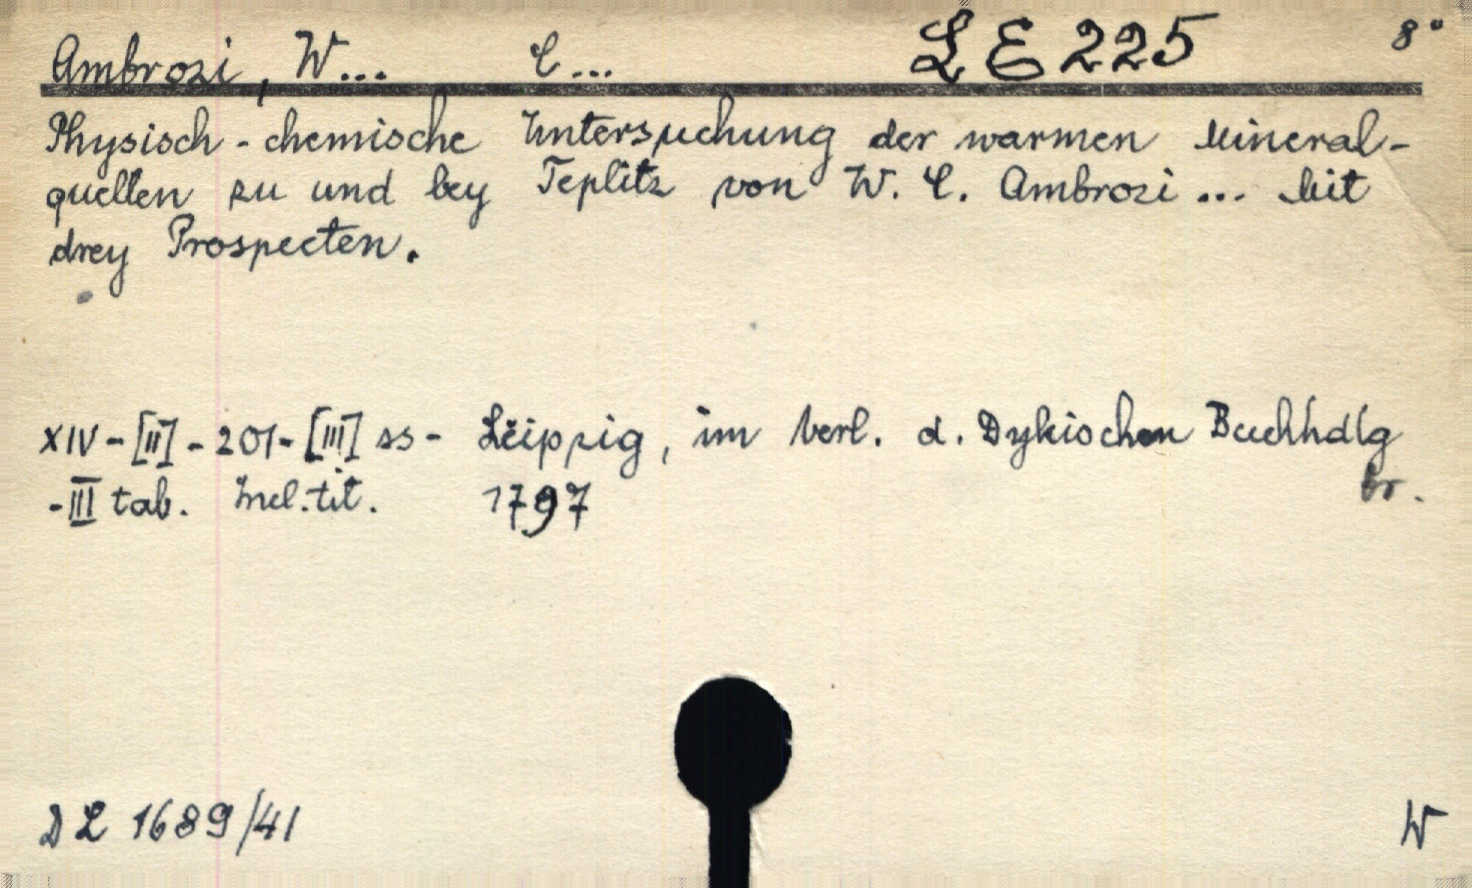 Ambrozi, W... C... LE 225 8°
Physisch-chemische Untersuchung der warmen Mineral-
quellen zu und bey Teplitz von W. C. Ambrozi... Mit
drey Prospecten.
XIV-[II]-201-[III] ss- Leipzig, im Verl. d. Dykischen Buchhdlg
-III tab. Incl. tit. 1797 br.
DL 1689/41 W